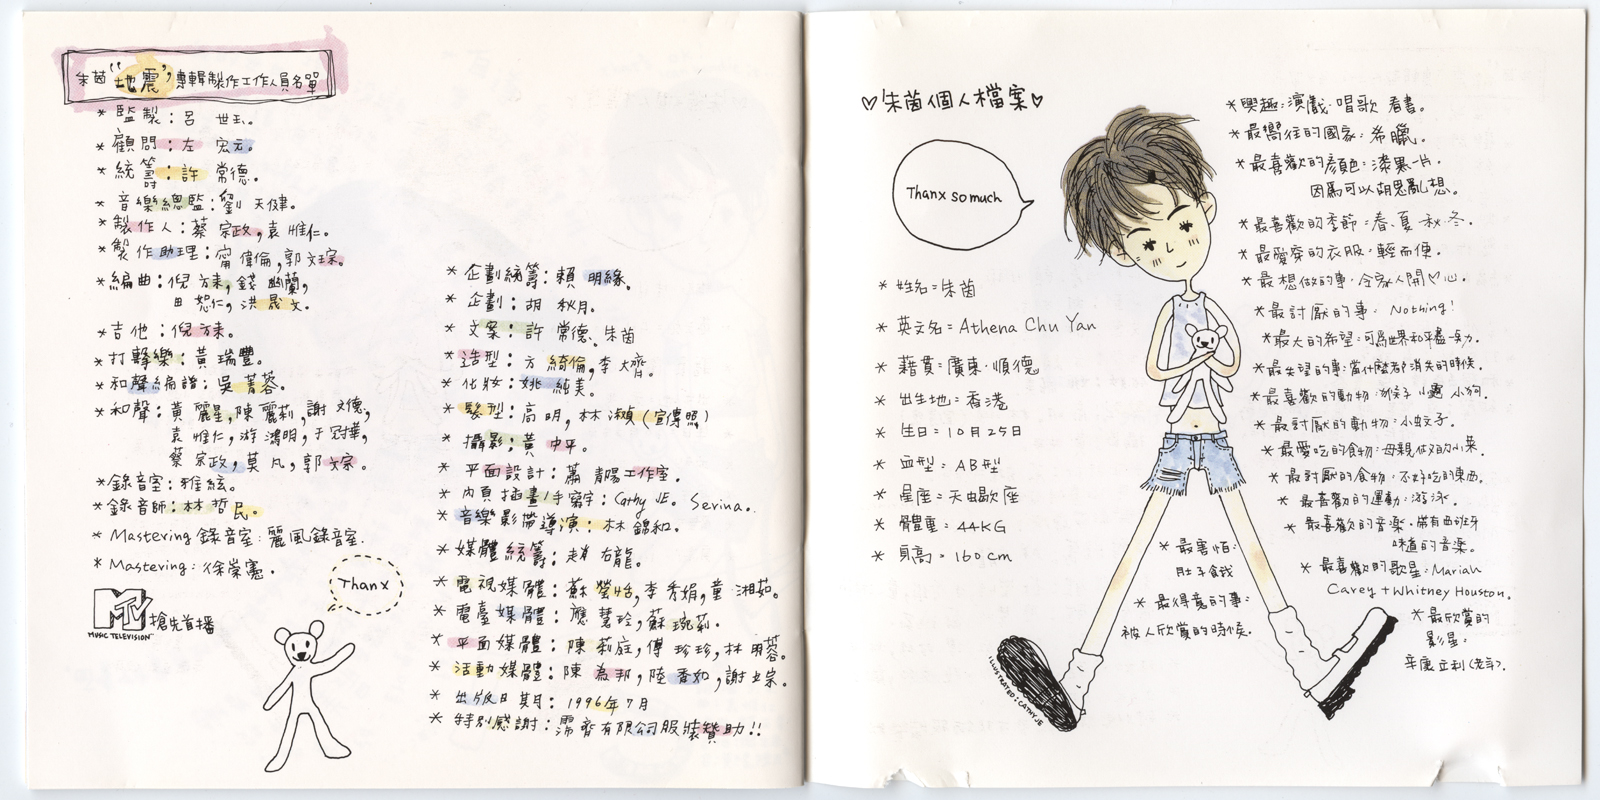 朱茵“地震”專輯製作工作人員名單
* 監製：呂 世玉。
* 顧問：左 宏元。
* 統籌：許 常德。
* 音樂總監：劉 天健。
* 製作人：蔡 宗政，袁 惟仁。
* 製作助理：甯 偉倫，郭 文宗。
* 編曲：倪 方來，錢 幽蘭，
田 恕仁，洪 晟文。
* 吉他：倪 方來。
* 打擊樂：黃 瑞豐。
* 和聲編譜：吳 菁蓉。
* 和聲：黃 麗星，陳 麗莉，謝 文德，
袁 惟仁，游 鴻明，于 冠華，
蔡 宗政，莫 凡，郭 文宗。
* 錄音室：雅弦。
* 錄音師：林 哲民。
* Mastering 錄音室：麗風錄音室。
* Mastering：徐崇憲。
MTV
MUSIC TELEVISION
搶先首播
Thanx
* 企劃統籌：賴 明緣。
* 企劃：胡 秋月。
* 文案：許 常德、朱茵
* 造型：方 綺倫，李 大齊。
* 化妝：姚 純美。
* 髮型：高 明，林 淑貞（宣傳照）
* 攝影：黃 中平。
* 平面設計：蕭 青陽工作室。
* 內頁插畫/手寫字：Cathy JE。Serina。
* 音樂影帶導演：林 錦和。
* 媒體統籌：趙 右龍。
* 電視媒體：蘇 瑩怡，李 秀娟，童 湘茹。
* 電臺媒體：應 慧玲，蘇 琬莉。
* 平面媒體：陳 莉庭，傅 珍珍，林 明蓉。
* 活動媒體：陳 為邦，陸 香如，謝 宗。
* 出版日期：1996年7月
* 特別感謝：霈齊有限公司服裝贊助!!
♡朱茵個人檔案♡
Thanx so much
* 姓名=朱茵
* 英文名=Athena Chu Yan
* 藉貫=廣東·順德
* 出生地=香港
* 生日=10月25日
* 血型=AB型
* 星座=天蝎座
* 體重=44KG
* 身高=160cm
* 興趣：演戲·唱歌 看書。
* 最嚮往的國家：希臘。
* 最喜歡的顏色：漆黑一片，
因為可以胡思亂想。
* 最喜歡的季節：春、夏、秋、冬。
* 最愛穿的衣服：輕而便。
* 最想做的事：令家人開♡心。
* 最討厭的事：Nothing！
* 最大的希望：可為世界和平盡一分力。
* 最失望的事：當什麼都消失的時候。
* 最喜歡的動物：猴子 小龜 小狗。
* 最討厭的動物：小蚊子。
* 最愛吃的食物：母親做的小菜。
* 最討厭的食物：不好吃的東西。
* 最喜歡的運動：游泳。
* 最喜歡的音樂：帶有西班牙
味道的音樂。
* 最喜歡的歌星：Mariah
Carey + Whitney Houston。
* 最害怕：
肚子餓
* 最得意的事：
被人欣賞的時候。
* 最欣賞的
影星：
辛康立利（老牛）。
ILLUSTRATED: CATHYJE